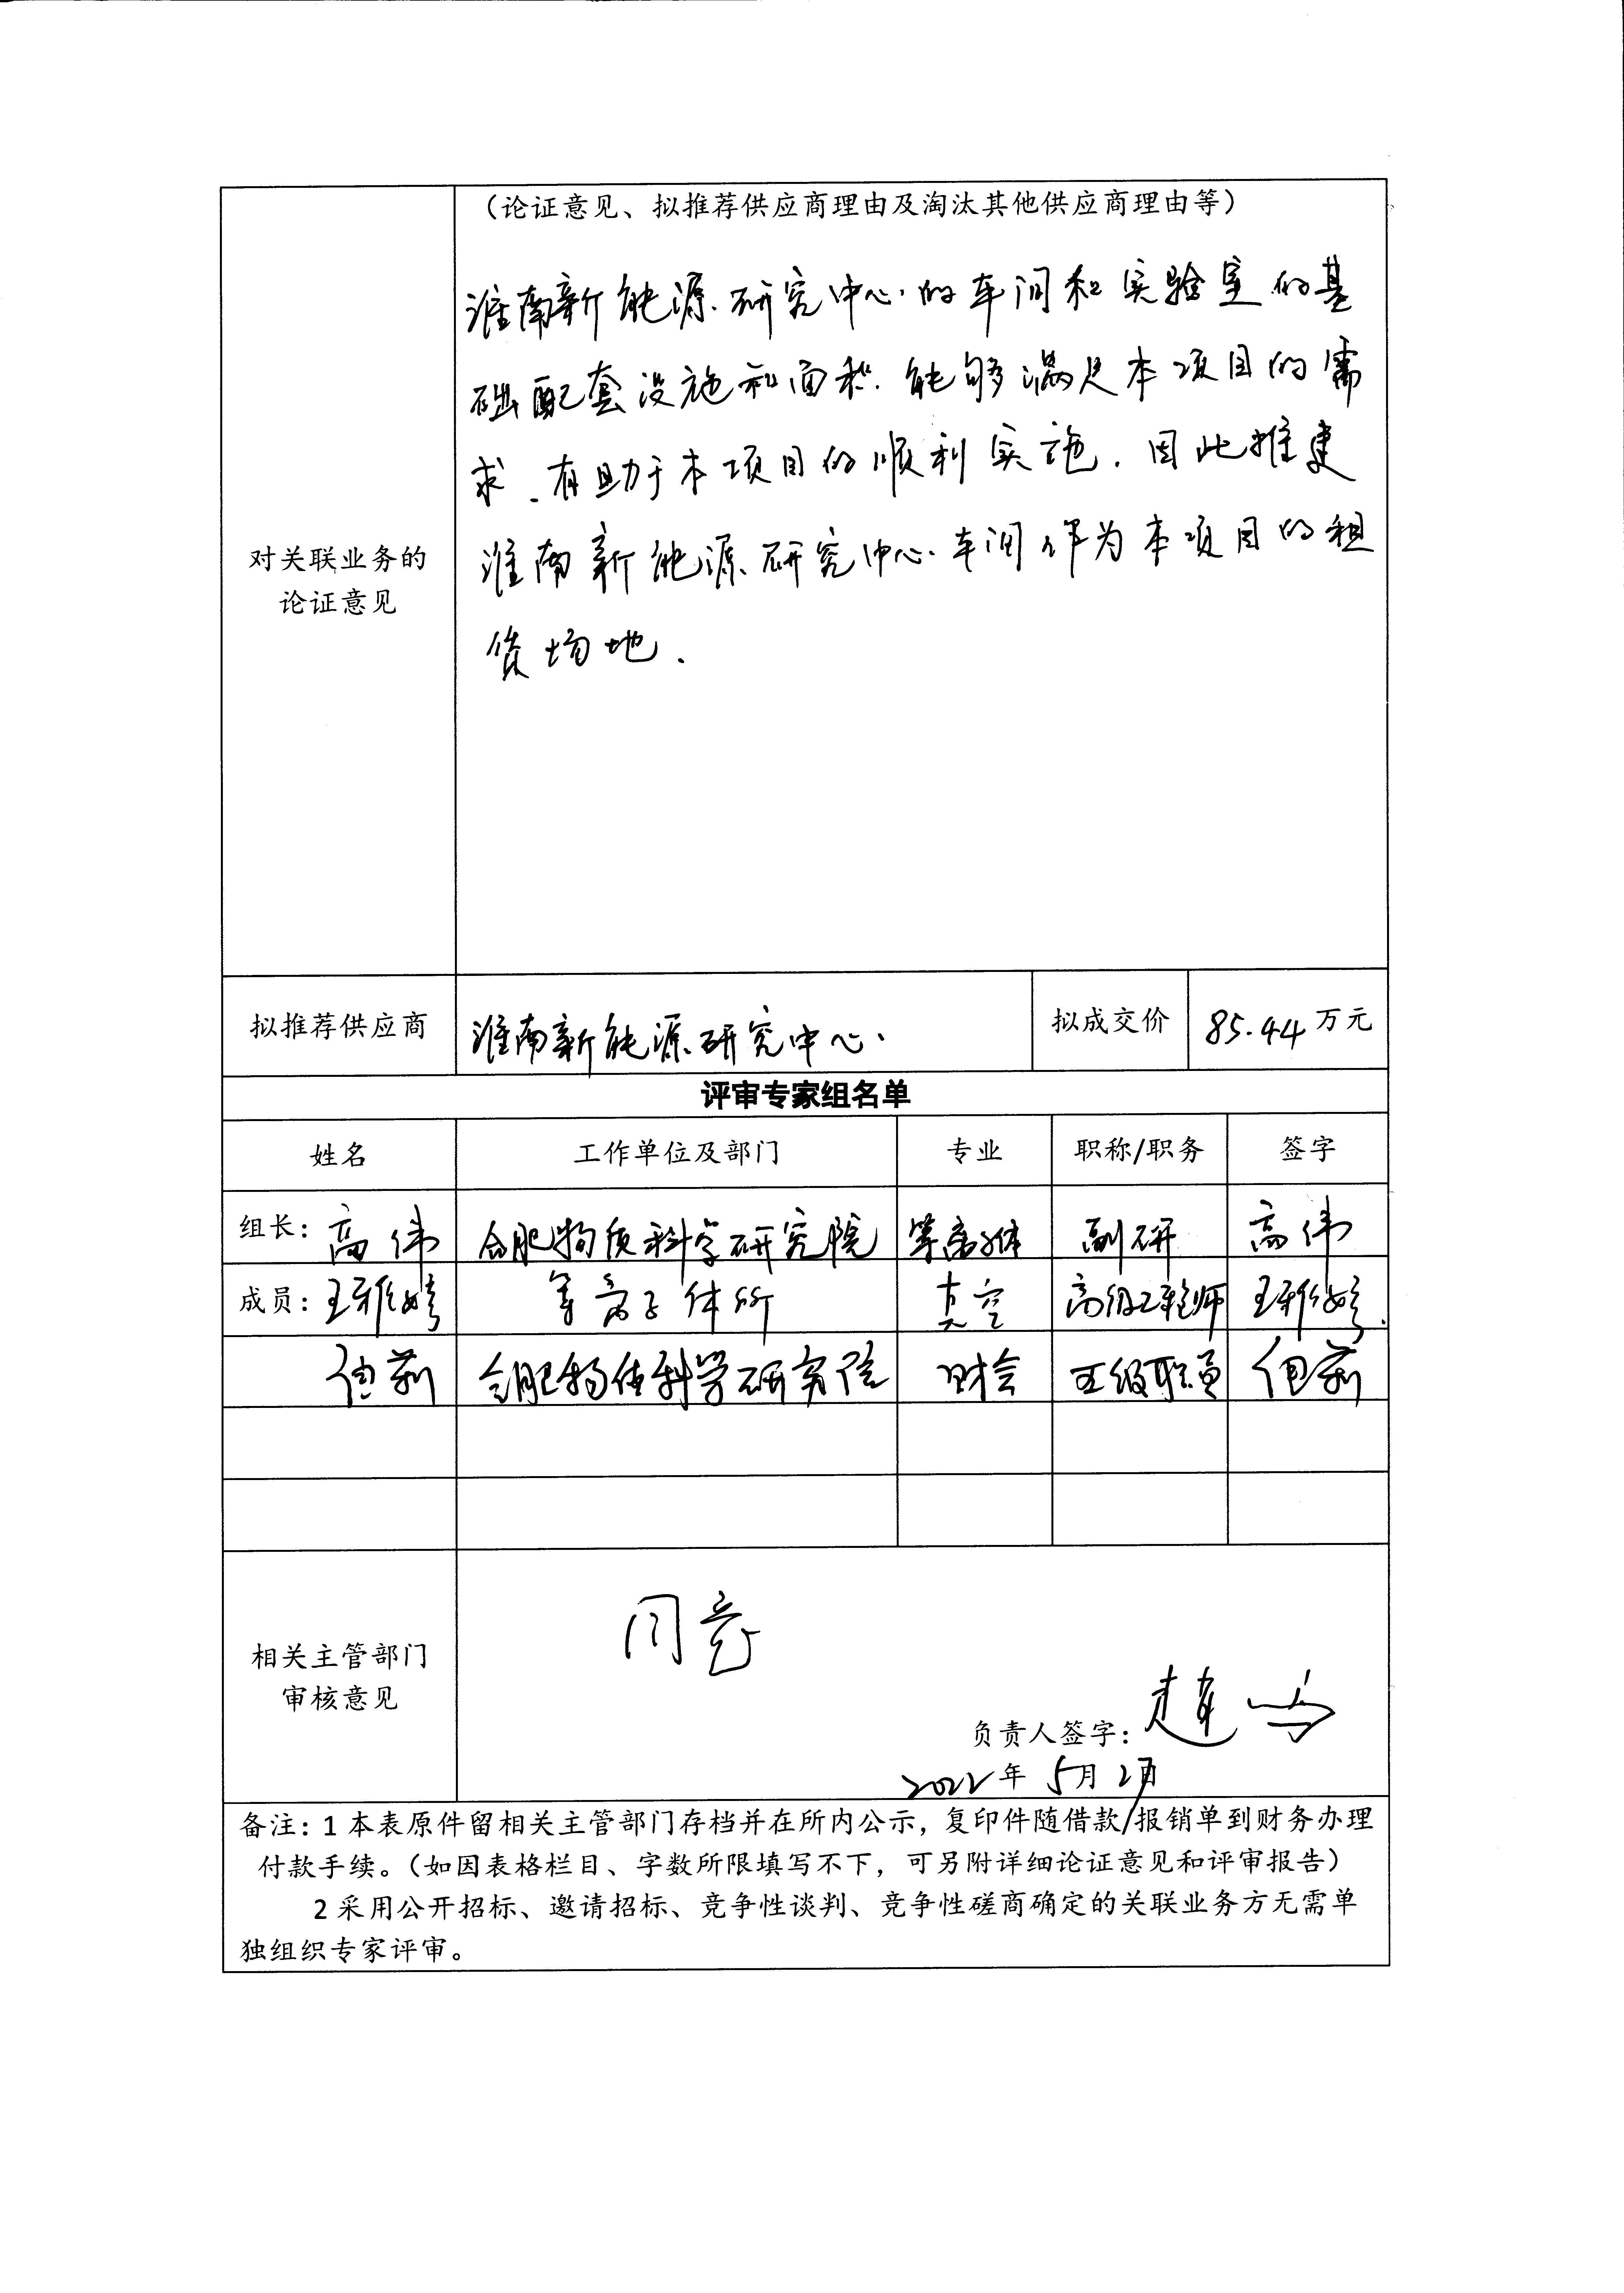 （论证意见、拟推荐供应商理由及淘汰其他供应商理由等）
淮南新能源研究中心的车间和实验室的基
础配套设施和面积能够满足本项目的需
求、有助于本项目的顺利实施。因此推建
淮南新能源研究中心车间作为本项目的租
赁场地.
对关联业务的
论证意见
拟推荐供应商 淮南新能源研究中心 拟成交价 85.44万元
评审专家组名单
姓名 工作单位及部门 专业 职称/职务 签字
组长：高伟 合肥物质科学研究院 等离子体 副研 高伟
成员：王雅 等离子体所 真空 高级工程师 王雅
莉 合肥物质科学研究院 财会 五级职员 莉
同意
相关主管部门
审核意见
负责人签字：
2022年5月2日
备注：1 本表原件留相关主管部门存档并在所内公示，复印件随借款/报销单到财务办理
付款手续。（如因表格栏目、字数所限填写不下，可另附详细论证意见和评审报告）
2 采用公开招标、邀请招标、竞争性谈判、竞争性磋商确定的关联业务方无需单
独组织专家评审。